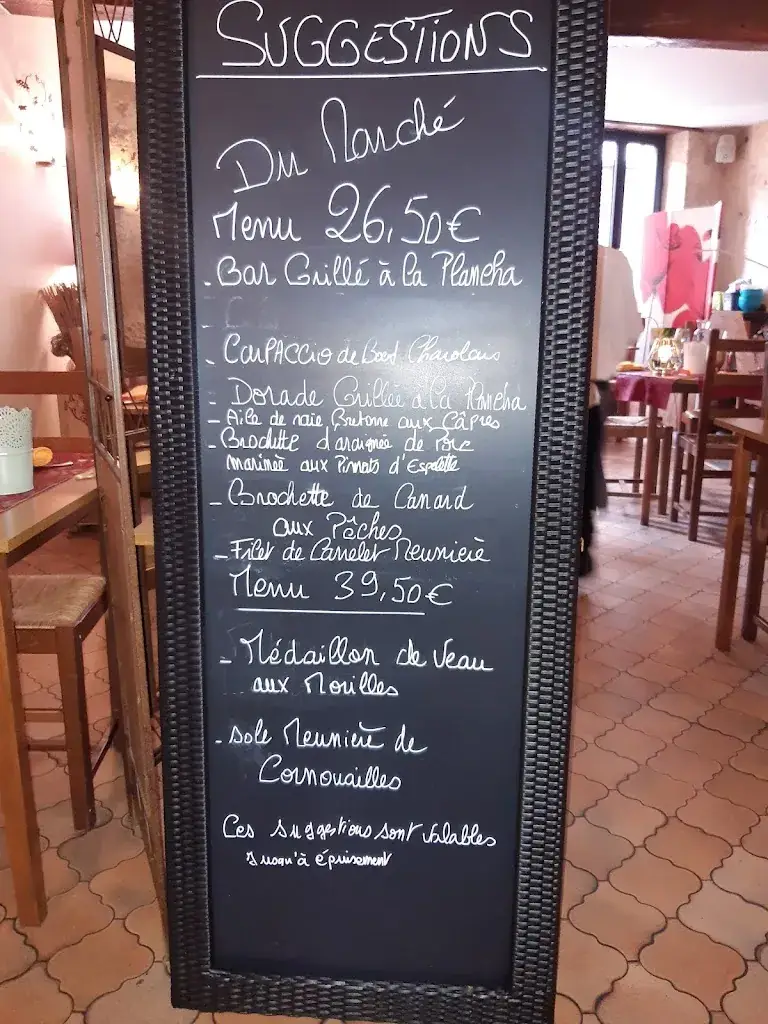 SUGGESTIONS
Du Marché
Menu 26,50€
- Bar Grillé à la Plancha
- CARPACCIO de Bœuf Charolais
- Dorade Grillée à la Plancha
- Aile de raie Bretonne aux Câpres
- Brochette d'araignée de Porc
marinée aux Piments d'Espelette
- Brochette de Canard
aux Pêches
- Filet de Carrelet Meunière
Menu 39,50€
- Médaillon de Veau
aux Morilles
- Sole Meunière de
Cornouailles
Ces suggestions sont valables
Jusqu'à épuisement